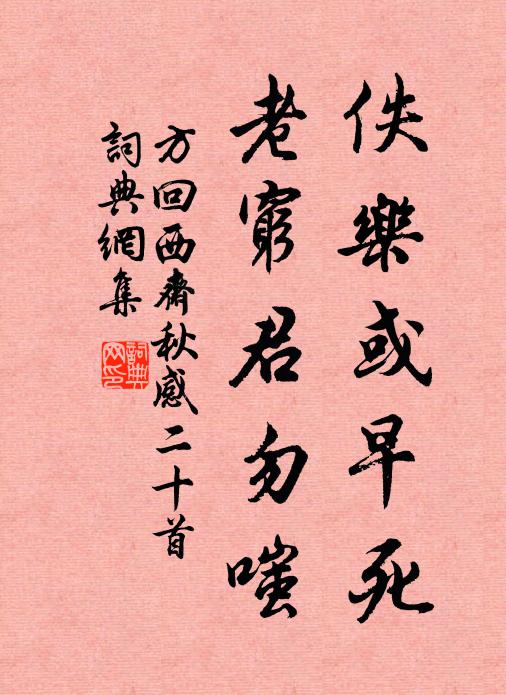 佚樂或早死
老窮君勿嗤
方回西齋秋感二十首
詞典網集
詞典網印